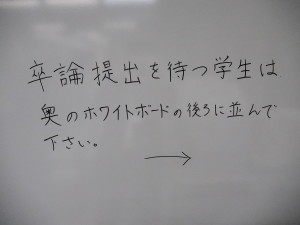 卒論提出を待つ学生は
奥のホワイトボードの後ろに並んで
下さい。
→